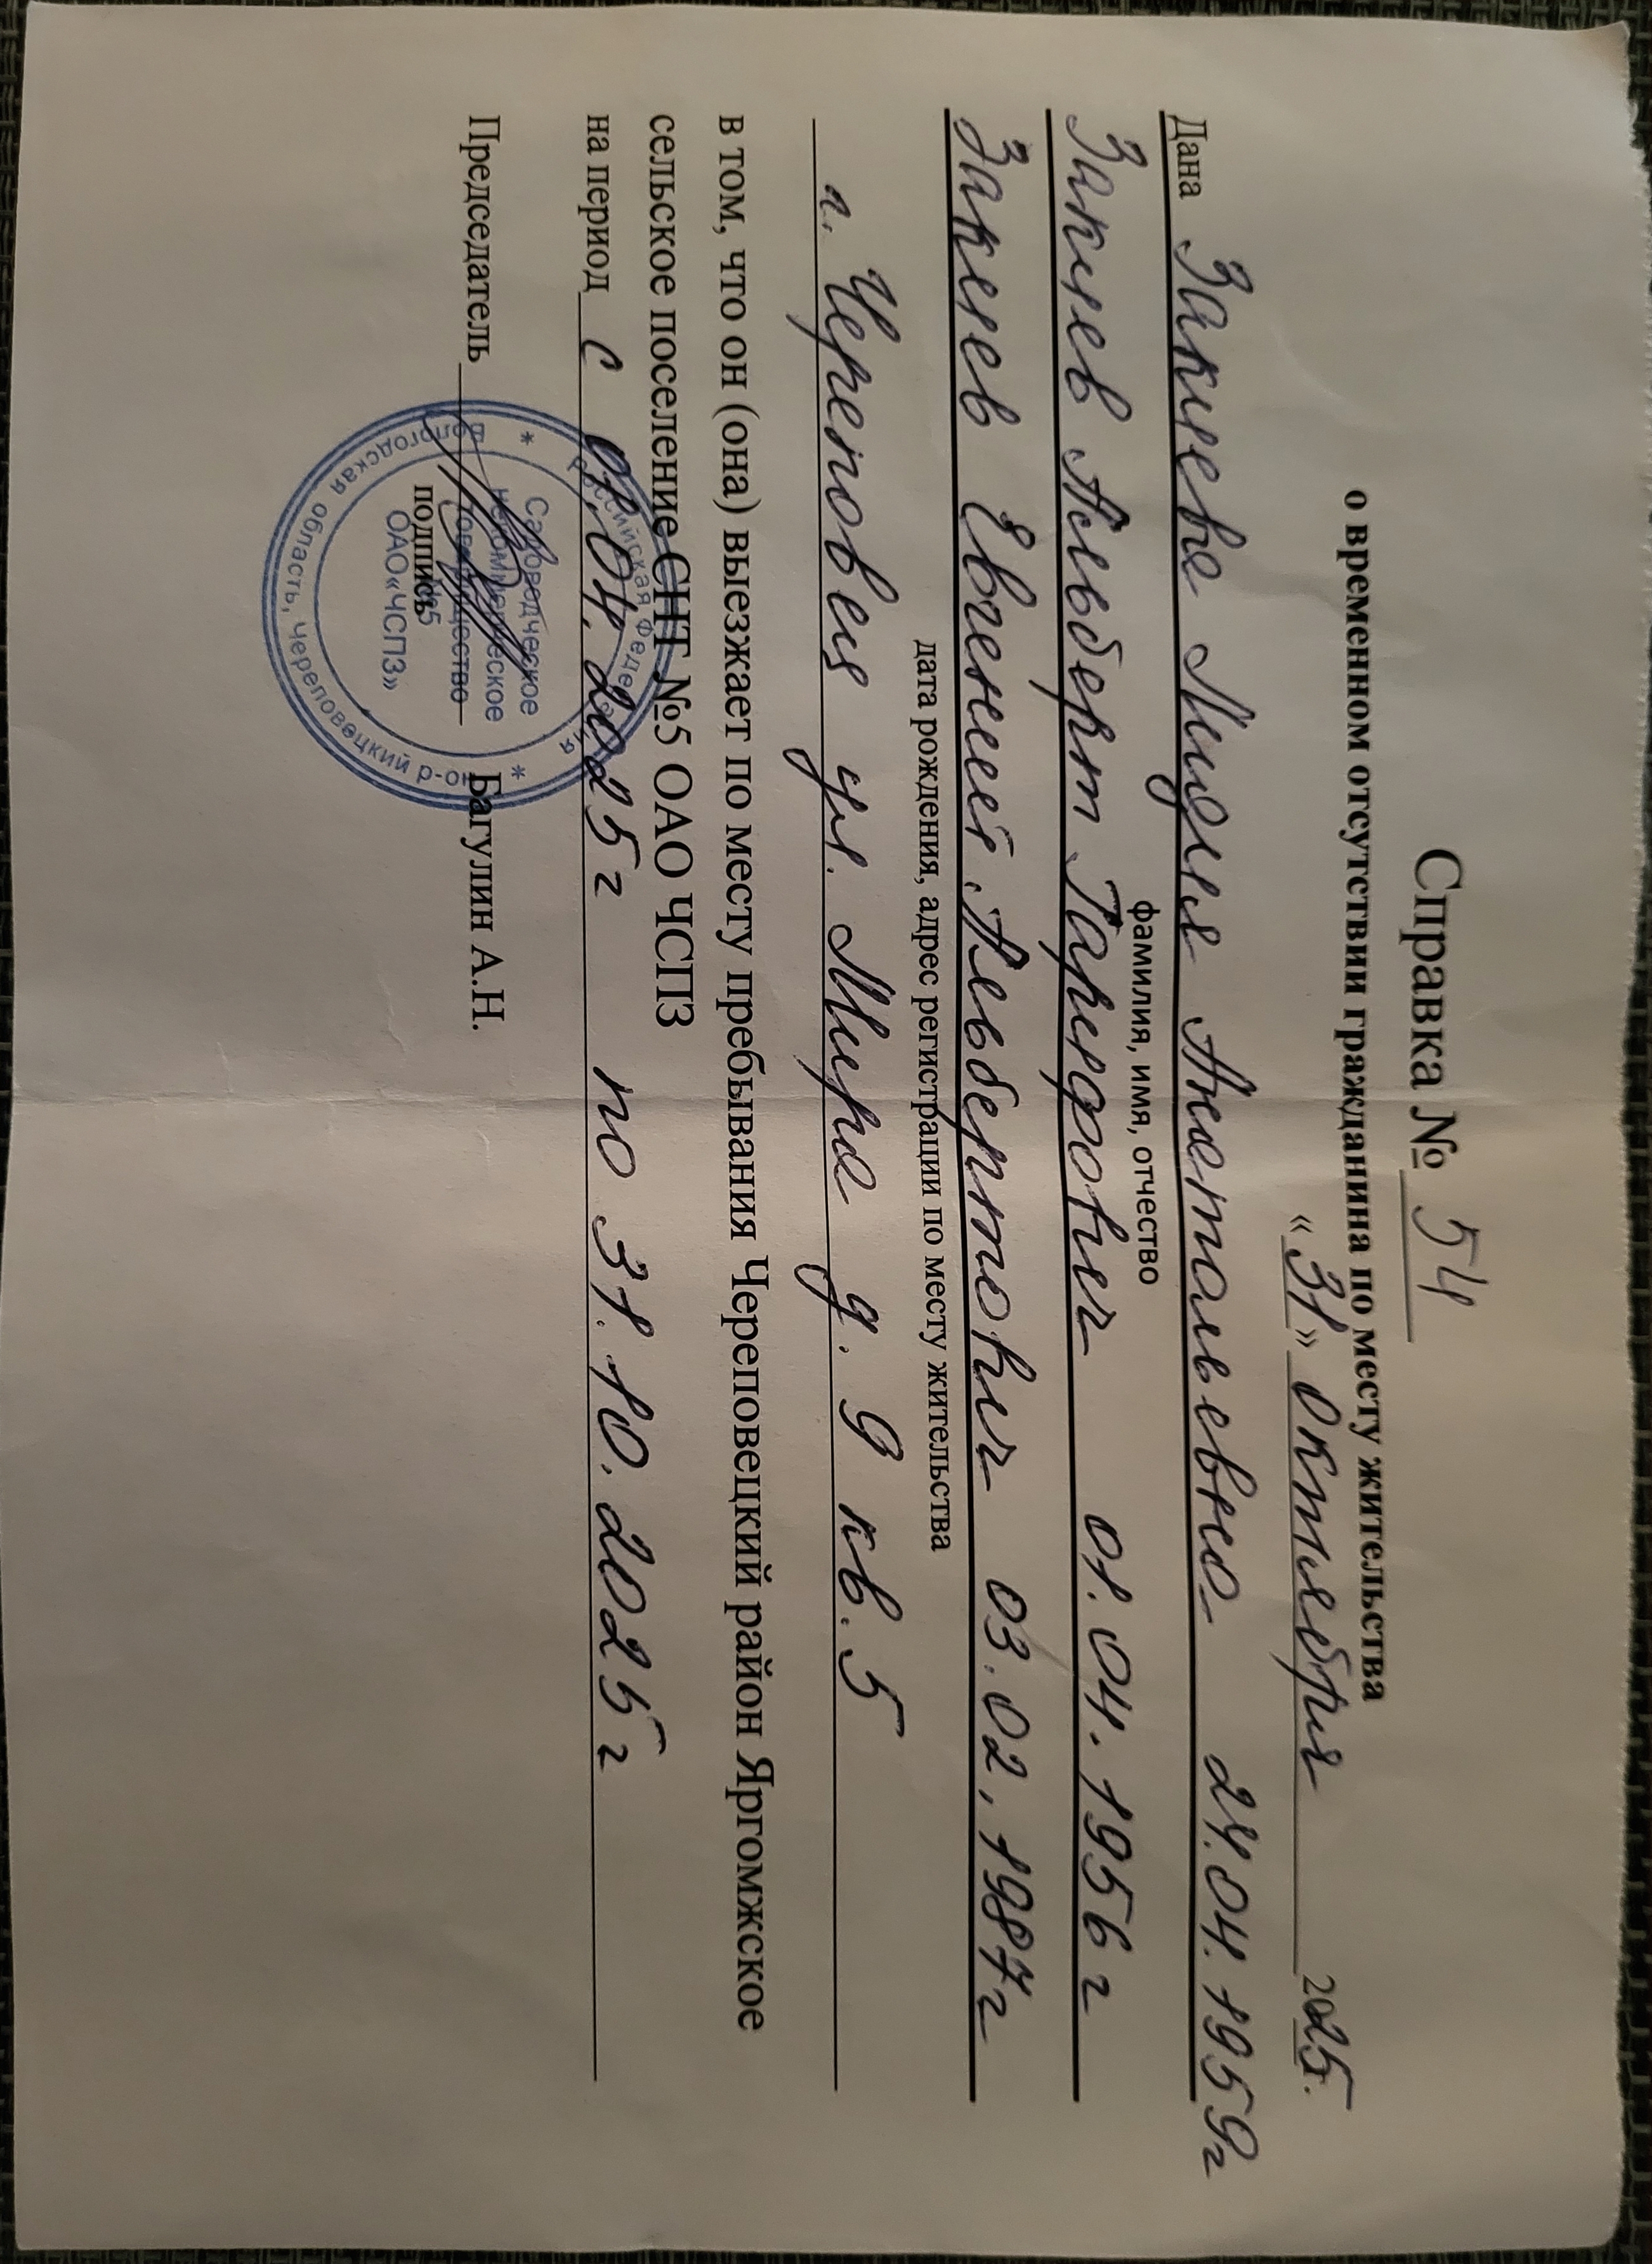 Справка № 54
о временном отсутствии гражданина по месту жительства
«31» Октября 2025г.
Дана Закиева Лидия Анатольевна 24.04.1959г
фамилия, имя, отчество
Закиев Альберт Гарифович 01.04.1956г
Закиев Евгений Альбертович 03.02.1987г
дата рождения, адрес регистрации по месту жительства
г. Череповец ул. Мира д. 9 кв. 5
в том, что он (она) выезжает по месту пребывания Череповецкий район Яргомжское
сельское поселение СНТ №5 ОАО ЧСПЗ
на период с 01.04.2025г по 31.10.2025г
Председатель Багулин А.Н.
подпись
Российская Федерация
Вологодская область, Череповецкий р-он
Садоводческое
некоммерческое
товарищество
№5
ОАО«ЧСПЗ»